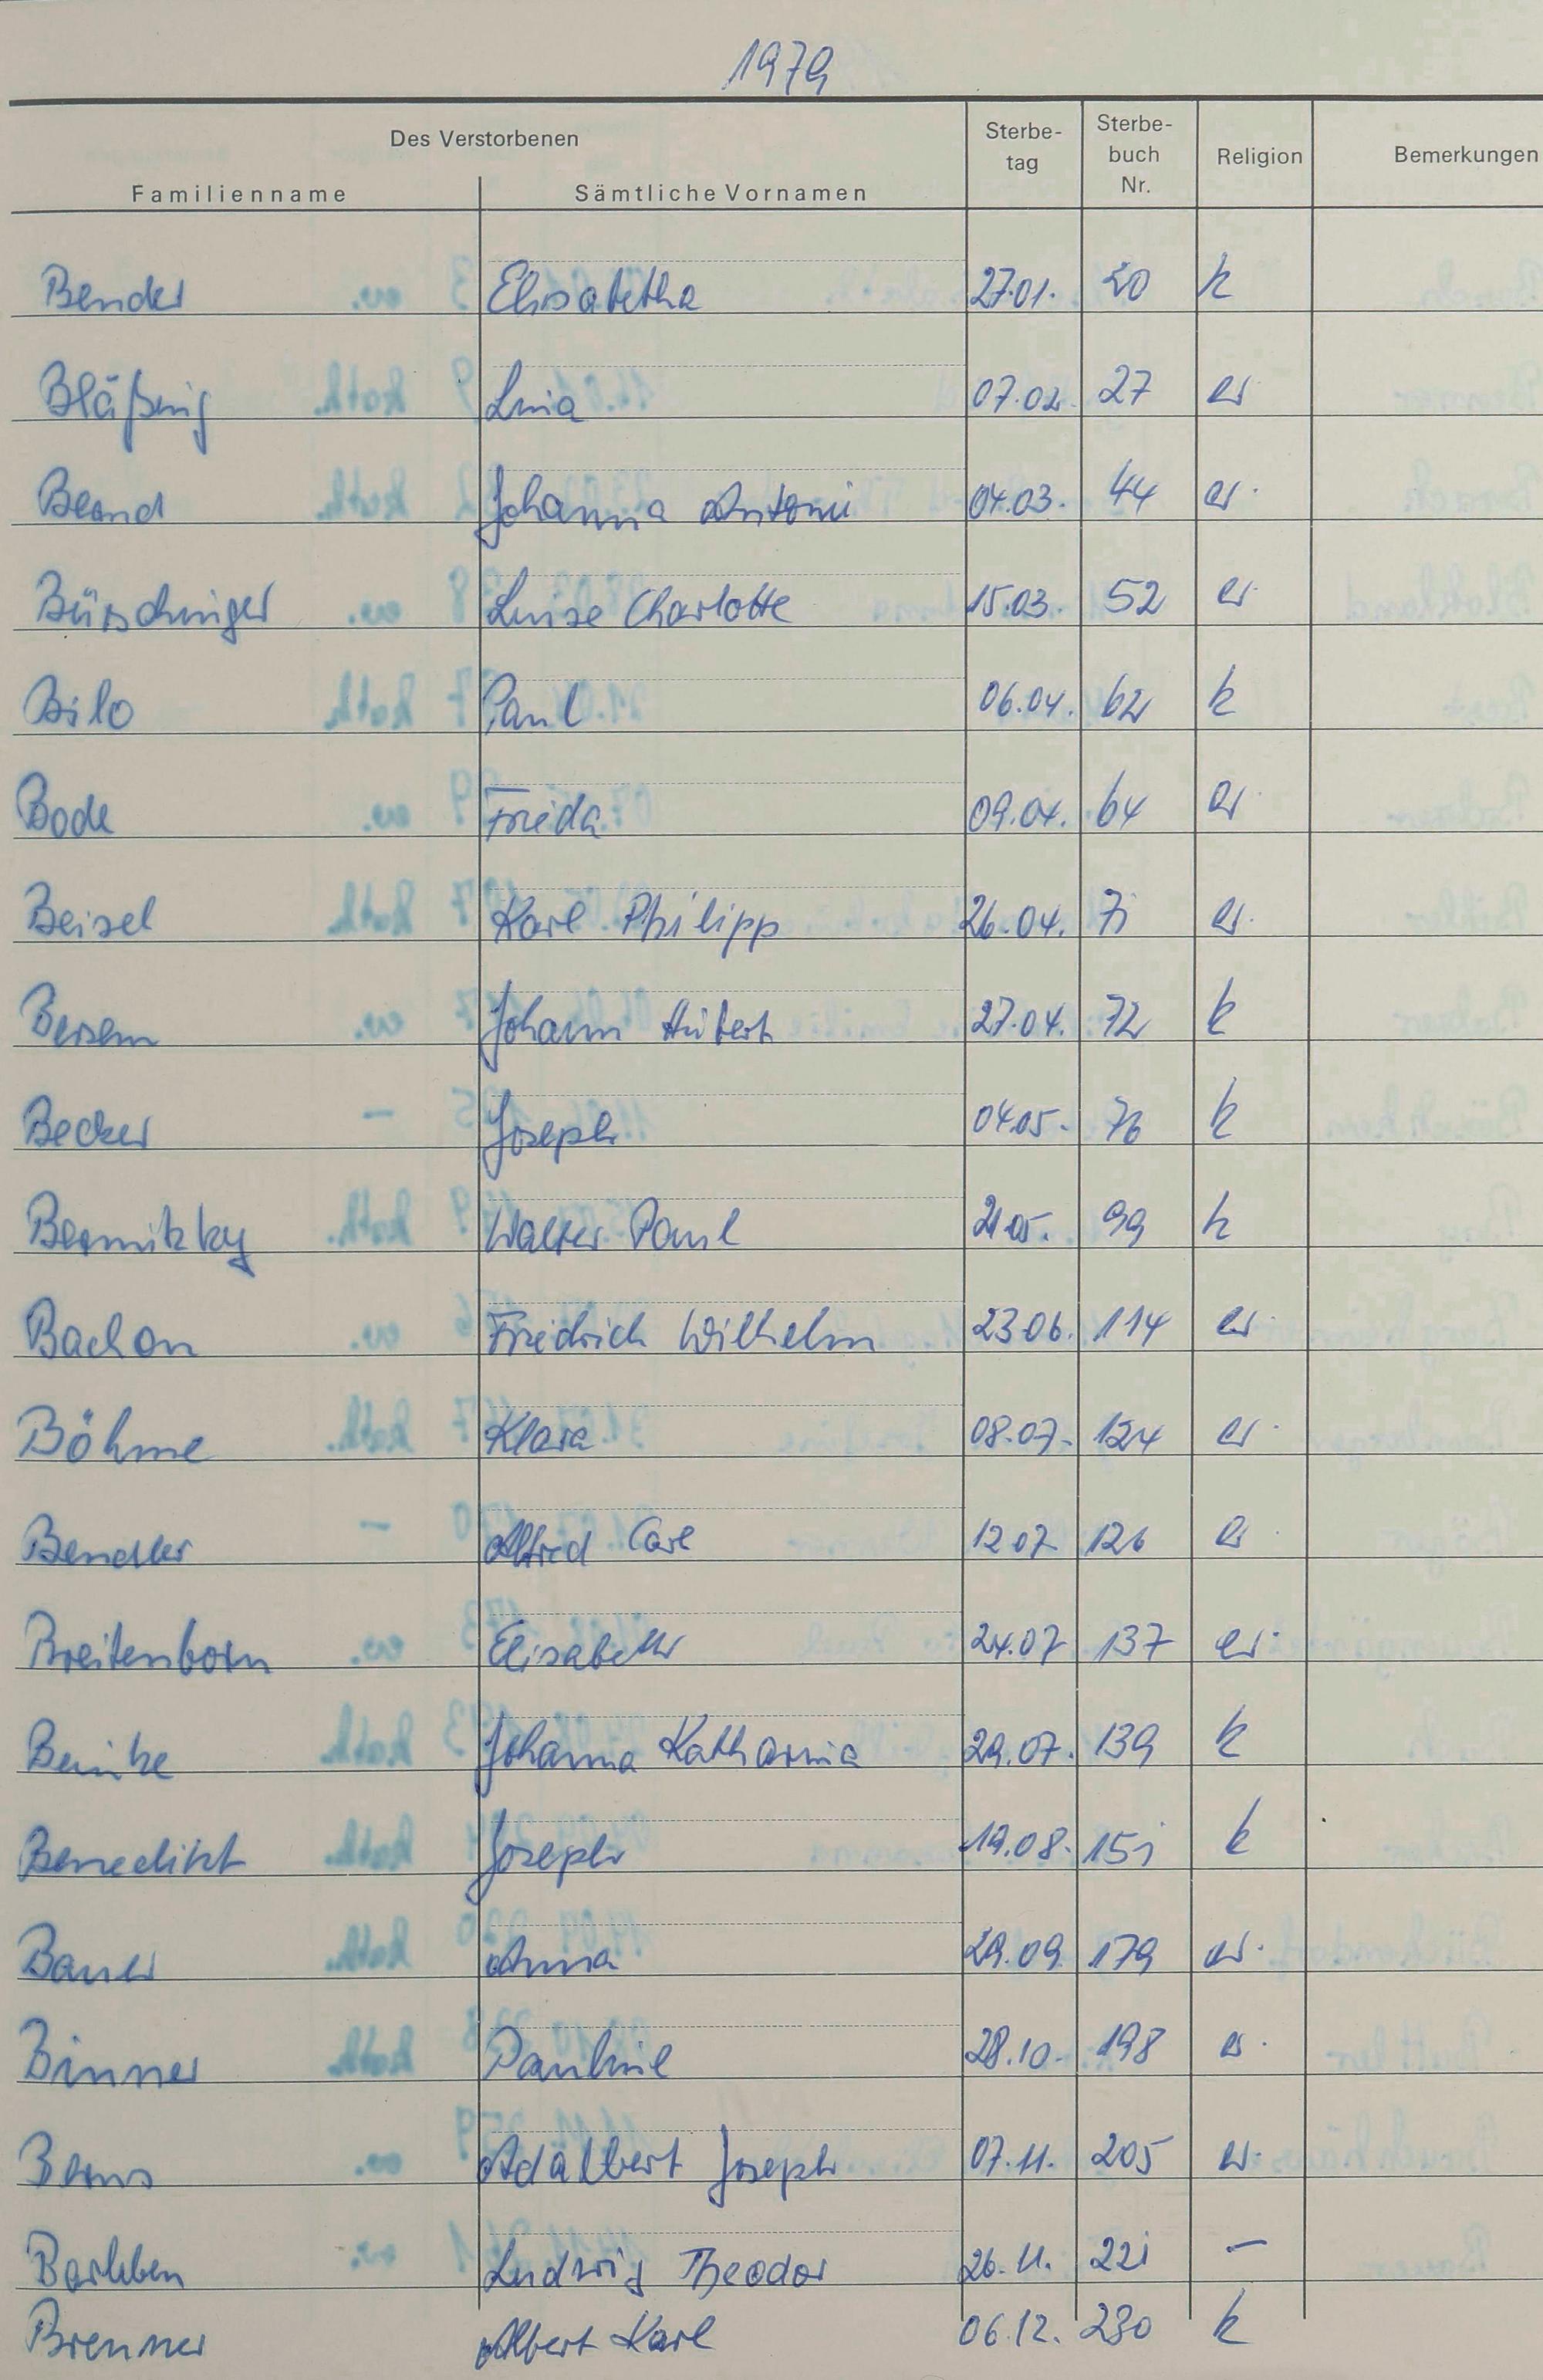 1979
Des Verstorbenen
Familienname Sämtliche Vornamen Sterbe-tag Sterbe-buch Nr. Religion Bemerkungen
Bender Elisabetha 27.01. 20 k
Bläßing Lina 07.02. 27 ev.
Brand Johanna Antonie 04.03. 44 ev.
Bürschinger Luise Charlotte 15.03. 52 ev.
Bilo Paul 06.04. 62 k
Bode Frieda 09.04. 64 ev.
Beisel Karl Philipp 26.04. 71 ev.
Bersem Johann Hubert 27.04. 72 k
Becker Joseph 04.05. 76 k
Walter Paul 21.05. 99 k
Bachon Friedrich Wilhelm 23.06. 114 ev.
Böhme Klara 08.07. 124 ev.
Bendler Alfred Carl 12.07. 126 ev.
Breitenborn Elisabeth 24.07 137 ev.
Beinke Johanna Katharina 29.07. 139 k
Benedikt Joseph 19.08. 151 k
Bauer Anna 29.09. 179 ev.
Binner Pauline 28.10. 198 ev.
Berns Adalbert Joseph 07.11. 205 ev.
Ludwig Theodor 26.11. 221 —
Brenner Albert Karl 06.12. 230 k